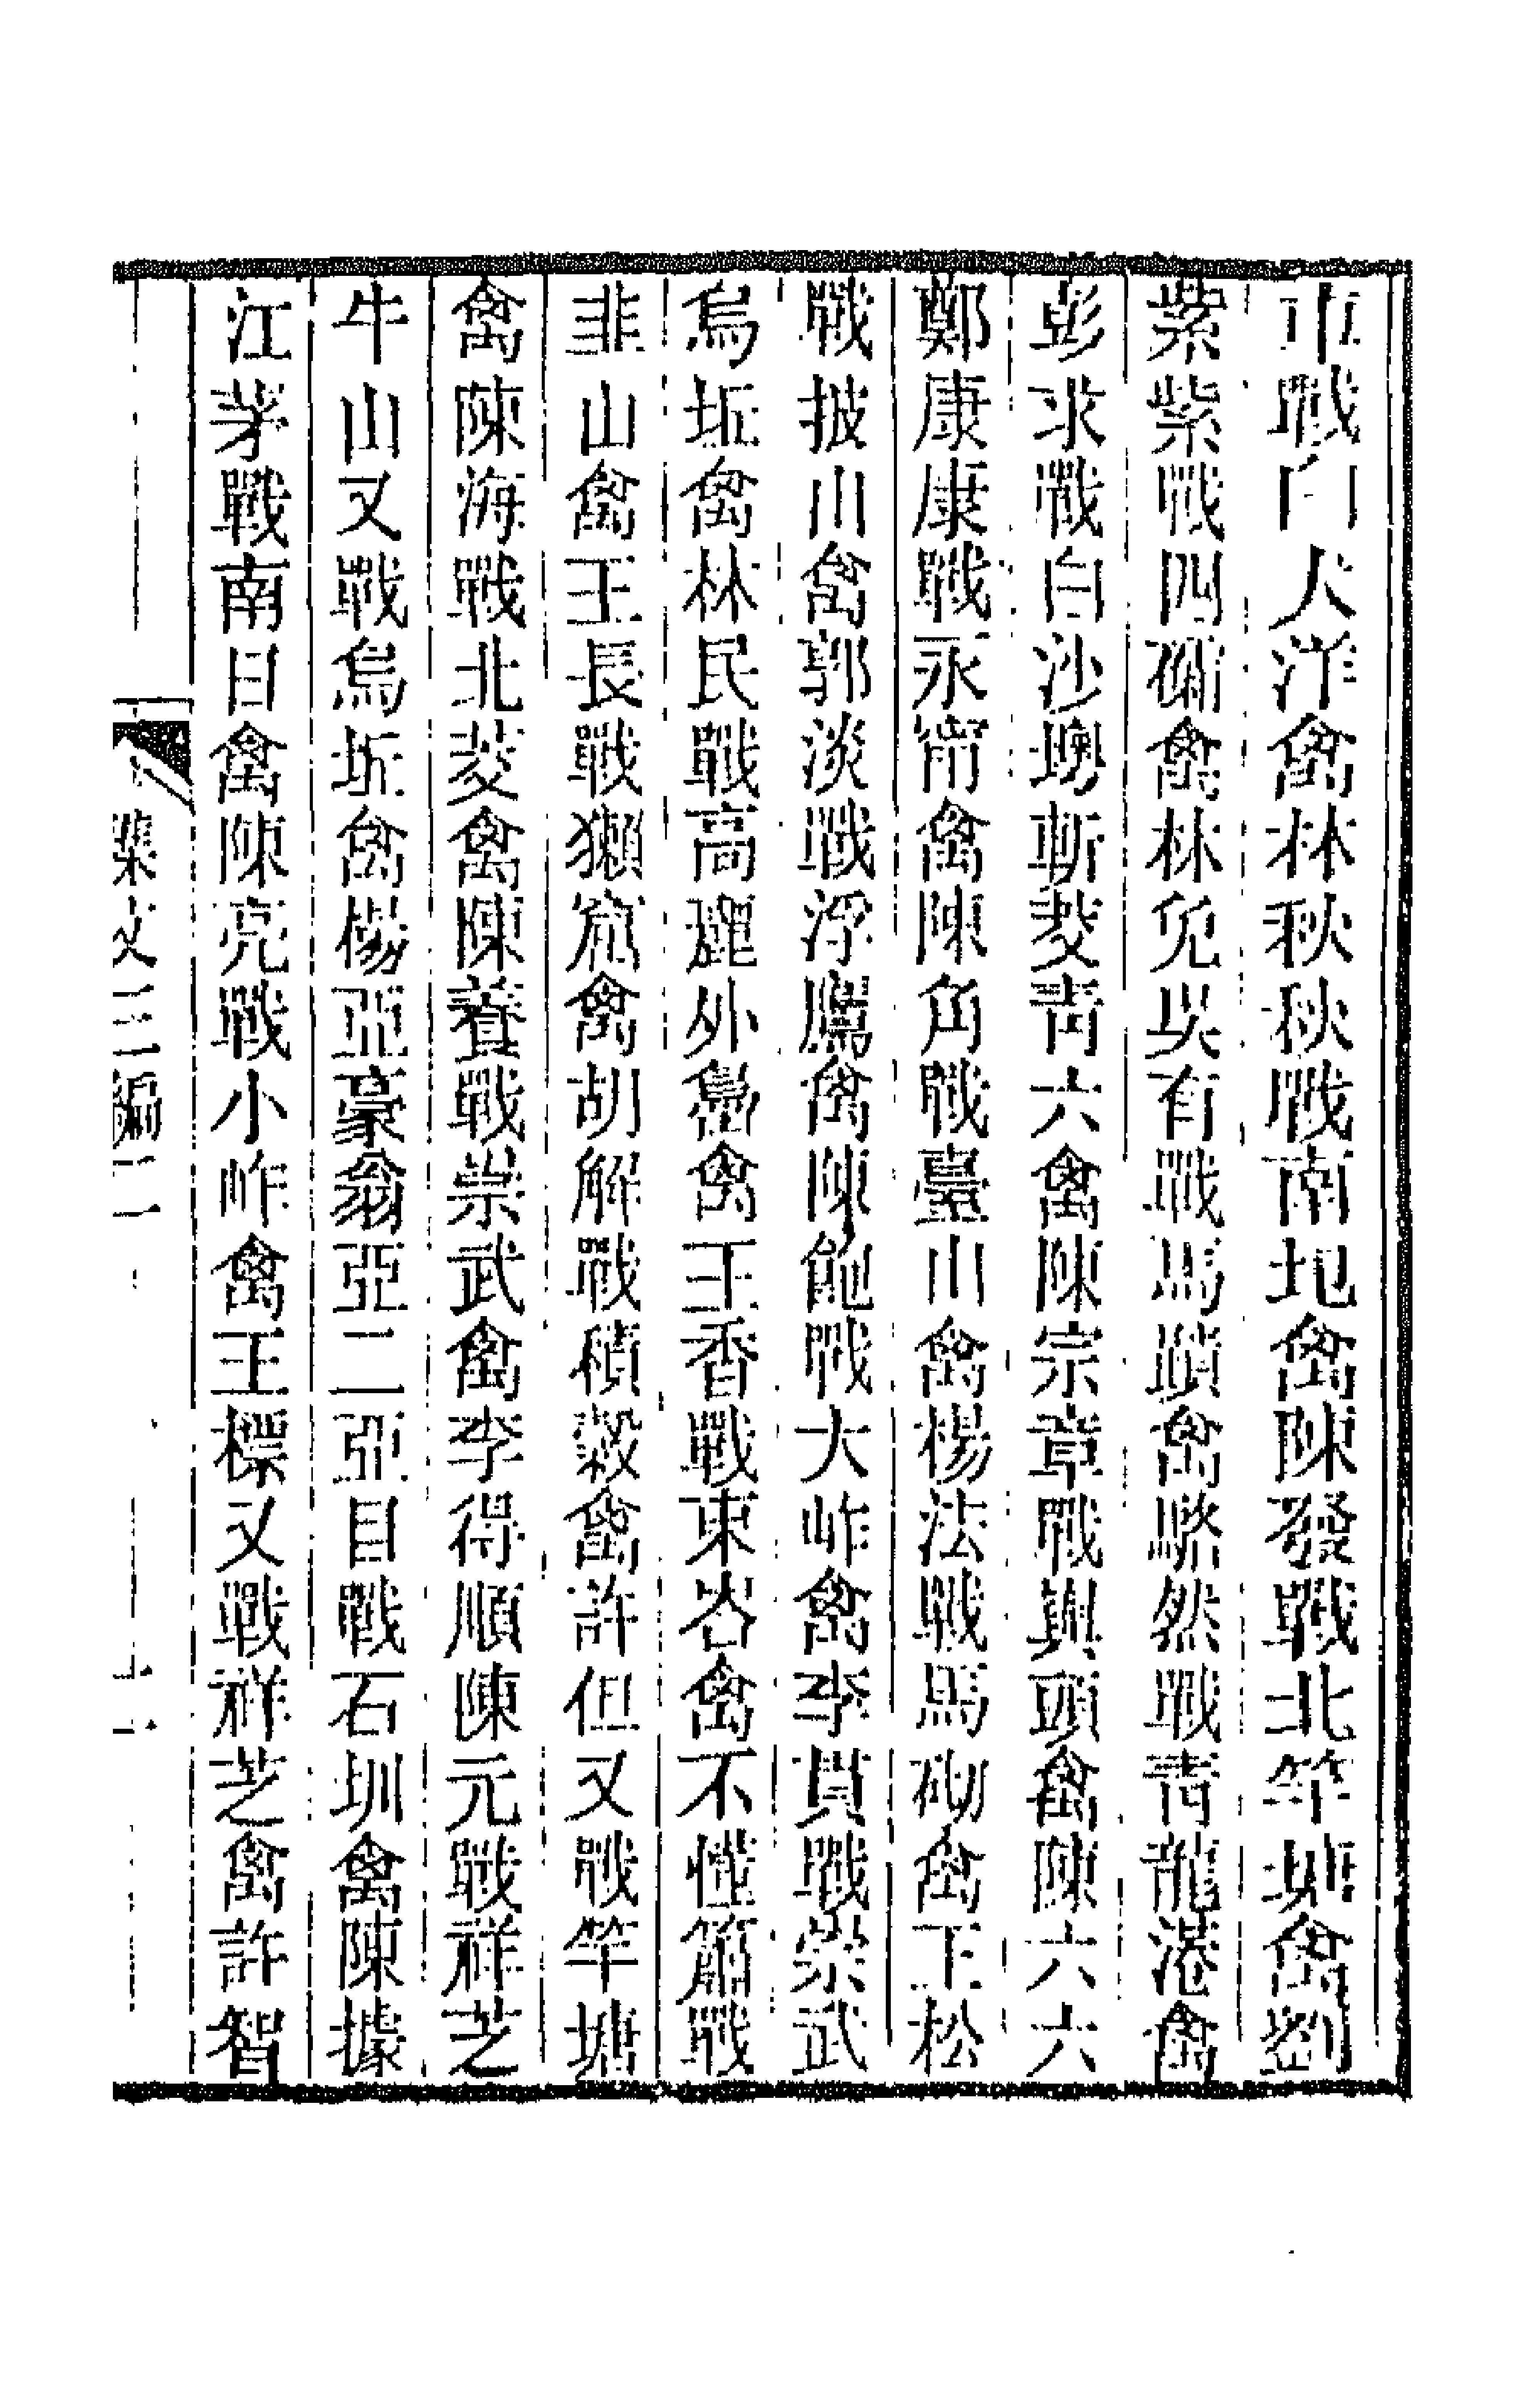 巾戰白犬洋禽林秋秋戰南地禽陳發戰北竿塘禽劉
紫紫戰四礵禽林兜吳有戰馬蹟禽驟然戰青龍港禽
彭求戰白沙墺斬葵青六禽陳宗章戰輿頭禽陳六六
鄭康康戰永甯禽陳角戰臺山禽楊法戰馬砌禽王松
戰披山禽郭淡戰浮鷹禽陳飽戰大岞禽李貫戰崇武
烏坵禽林民戰高麗外嶴禽王香戰東峇禽不懂簫戰
韭山禽王長戰獺窟禽胡解戰積穀禽許但又戰竿塘
禽陳海戰北茭禽陳養戰崇武禽李得順陳元戰祥芝
牛山又戰烏坵禽楊亞豪翁亞二亞目戰石圳禽陳據
江茅戰南日禽陳亮戰小岞禽王標又戰祥芝禽許智
集文三編二